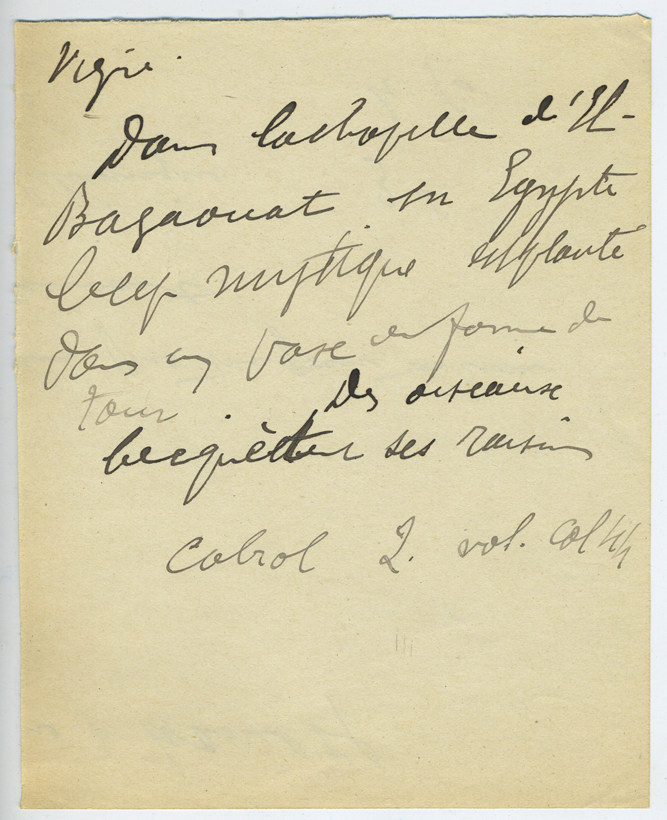 Vigne.
Dans la chapelle d'El-
Bagaouat en Egypte
le cep mystique est planté
dans un vase en forme de
tour. Des oiseaux
becquètent ses raisins
Cabrol 2. vol. col 44